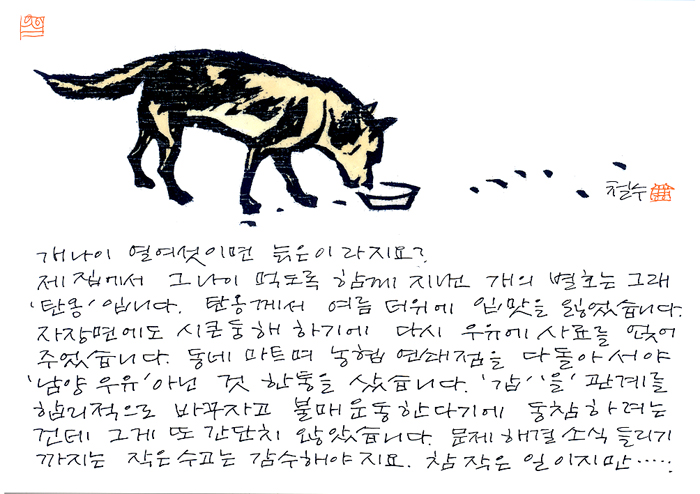 철수
개나이 열여섯이면 늙은이라지요?
제 집에서 그 나이 먹도록 함께 지낸 개의 별호는 그래
'탄옹'입니다. 탄옹께서 여름 더위에 입맛을 잃었습니다.
자장면에도 시큰둥해 하기에 다시 우유에 사료를 얹어
주었습니다. 동네 마트며 농협 연쇄점을 다 돌아서야
'남양 우유' 아닌 것 한통을 샀습니다. '갑''을' 관계를
합리적으로 바꾸자고 불매운동한다기에 동참하려는
건데 그게 또 간단치 않았습니다. 문제 해결 소식 들리기
까지는 작은 수고는 감수해야지요. 참 작은 일이지만·····.